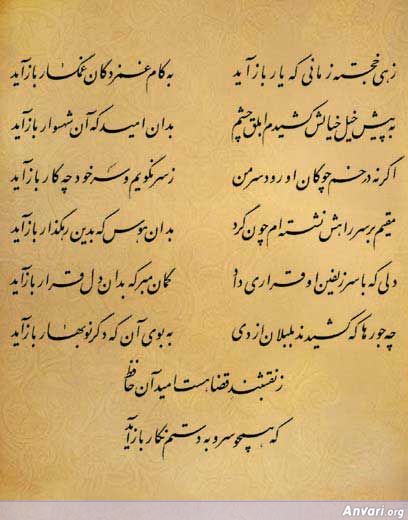 زهی خجسته زمانی که یار بازآید به کام غمزدگان غمگسار بازآید
به پیش خیل خیالش کشیدم ابلق چشم بدان امید که آن شهسوار بازآید
اگر نه در خم چوگان او رود سر من ز سر نگویم و سر خود چه کار بازآید
مقیم بر سر راهش نشسته‌ام چون گرد بدان هوس که بدین رهگذار بازآید
دلی که با سر زلفین او قراری داد گمان مبر که بدان دل قرار بازآید
چه جورها که کشیدند بلبلان از دی به بوی آن که دگر نوبهار بازآید
ز نقشبند قضا هست امید آن حافظ
که همچو سرو به دستم نگار بازآید
Anvari.org